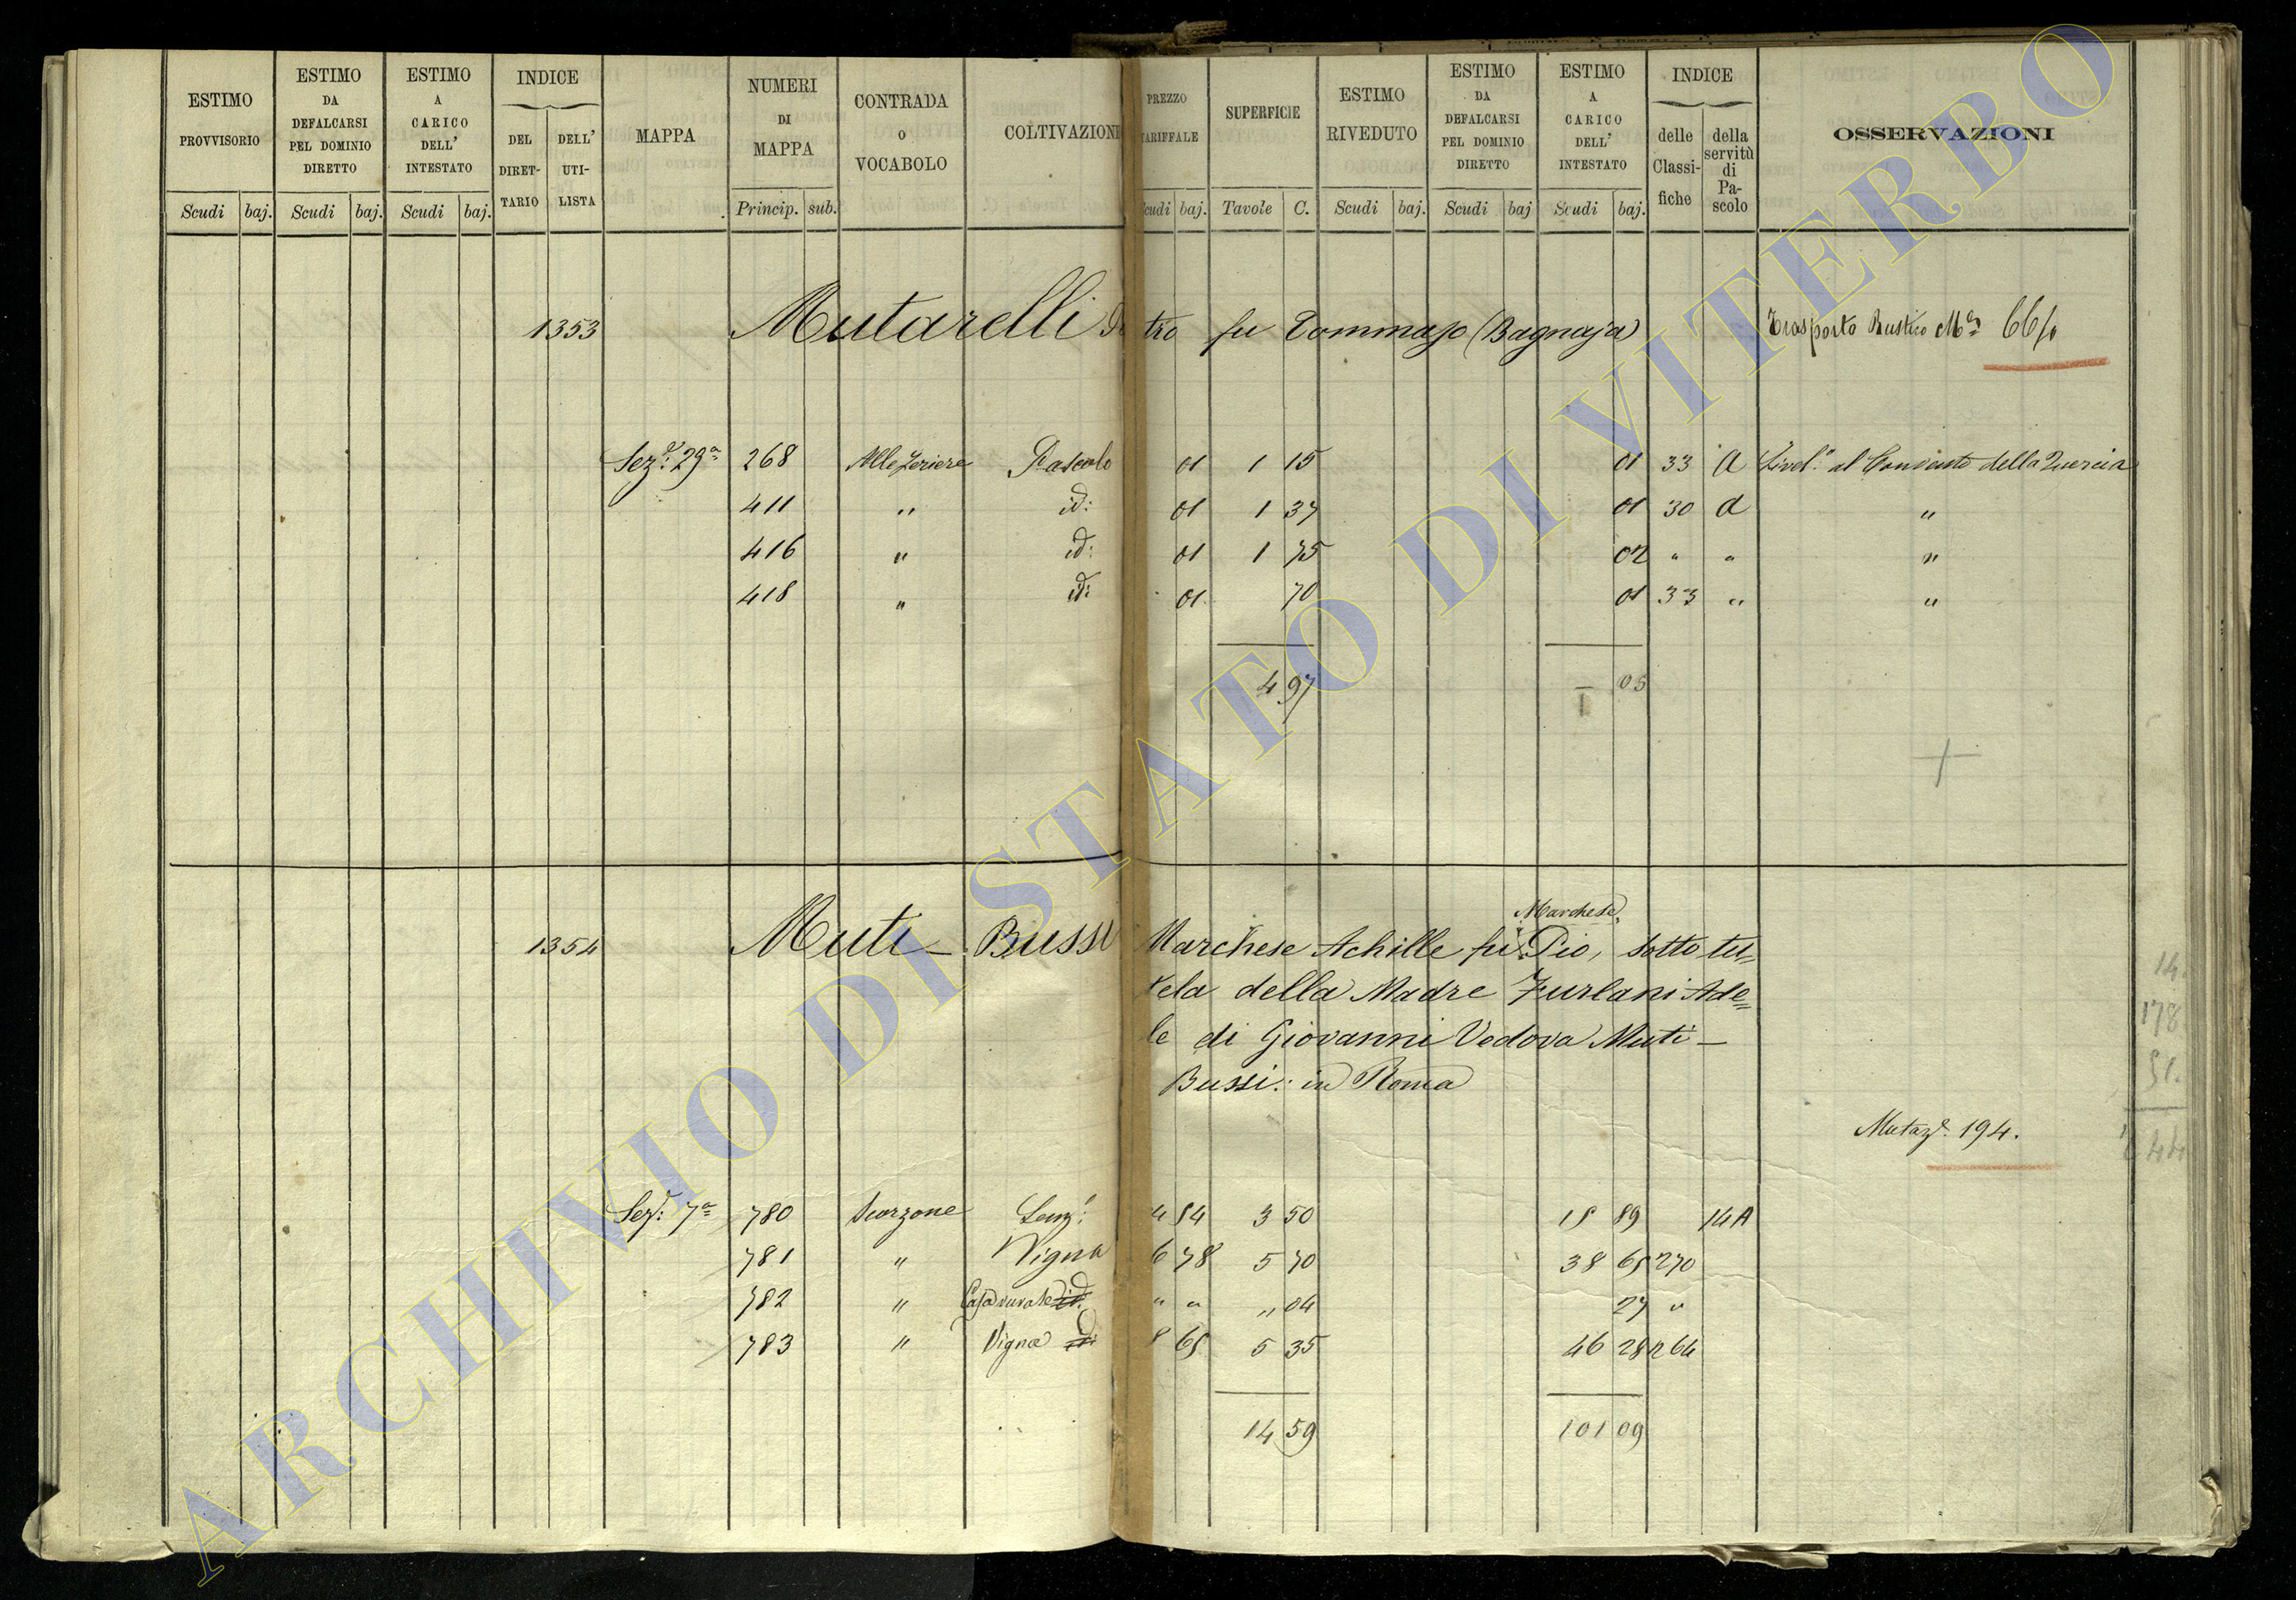 ESTIMO PROVVISORIO | ESTIMO DA DEFALCARSI PEL DOMINIO DIRETTO | ESTIMO A CARICO DELL' INTESTATO | INDICE DEL DIRET-TARIO | DELL' UTI-LISTA | MAPPA | NUMERI DI MAPPA | CONTRADA O VOCABOLO | COLTIVAZIONE | PREZZO TARIFFALE | SUPERFICIE | ESTIMO RIVEDUTO | ESTIMO DA DEFALCARSI PEL DOMINIO DIRETTO | ESTIMO A CARICO DELL' INTESTATO | INDICE delle Classi-fiche | della servitù di Pa-scolo | OSSERVAZIONI
Scudi baj. Scudi baj. Scudi baj. Princip. sub. Scudi baj. Tavole C. Scudi baj. Scudi baj Scudi baj.
1353 Mutarelli Pietro fu Tommaso (Bagnaja) Trasporto Rustico
Sez: 29a 268 Alle Feriere Pascolo 01 1 15 01 33 A Livel.o al Convento della Quercia
411 " id: 01 1 37 01 30 A "
416 " id: 01 1 75 02 " " "
418 " id: 01 70 01 33 " "
4 97 — 05
1354 Muti - Bussi Marchese Achille fu Marchese Pio, sotto tu=
tela della Madre Furlani Ade=
le di Giovanni Vedova Muti -
Bussi: in Roma
Mutaz.e 194.
Sez: 7a 780 Scorzone 4 54 3 50 15 89 14 A
781 " Vigna 6 78 5 70 38 65 270
782 " Casa rurale id. " " " 04 27 "
783 " Vigna id. 8 65 5 35 46 28 264
14 59 101 09
14
178
51.
ARCHIVIO DI STATO DI VITERBO